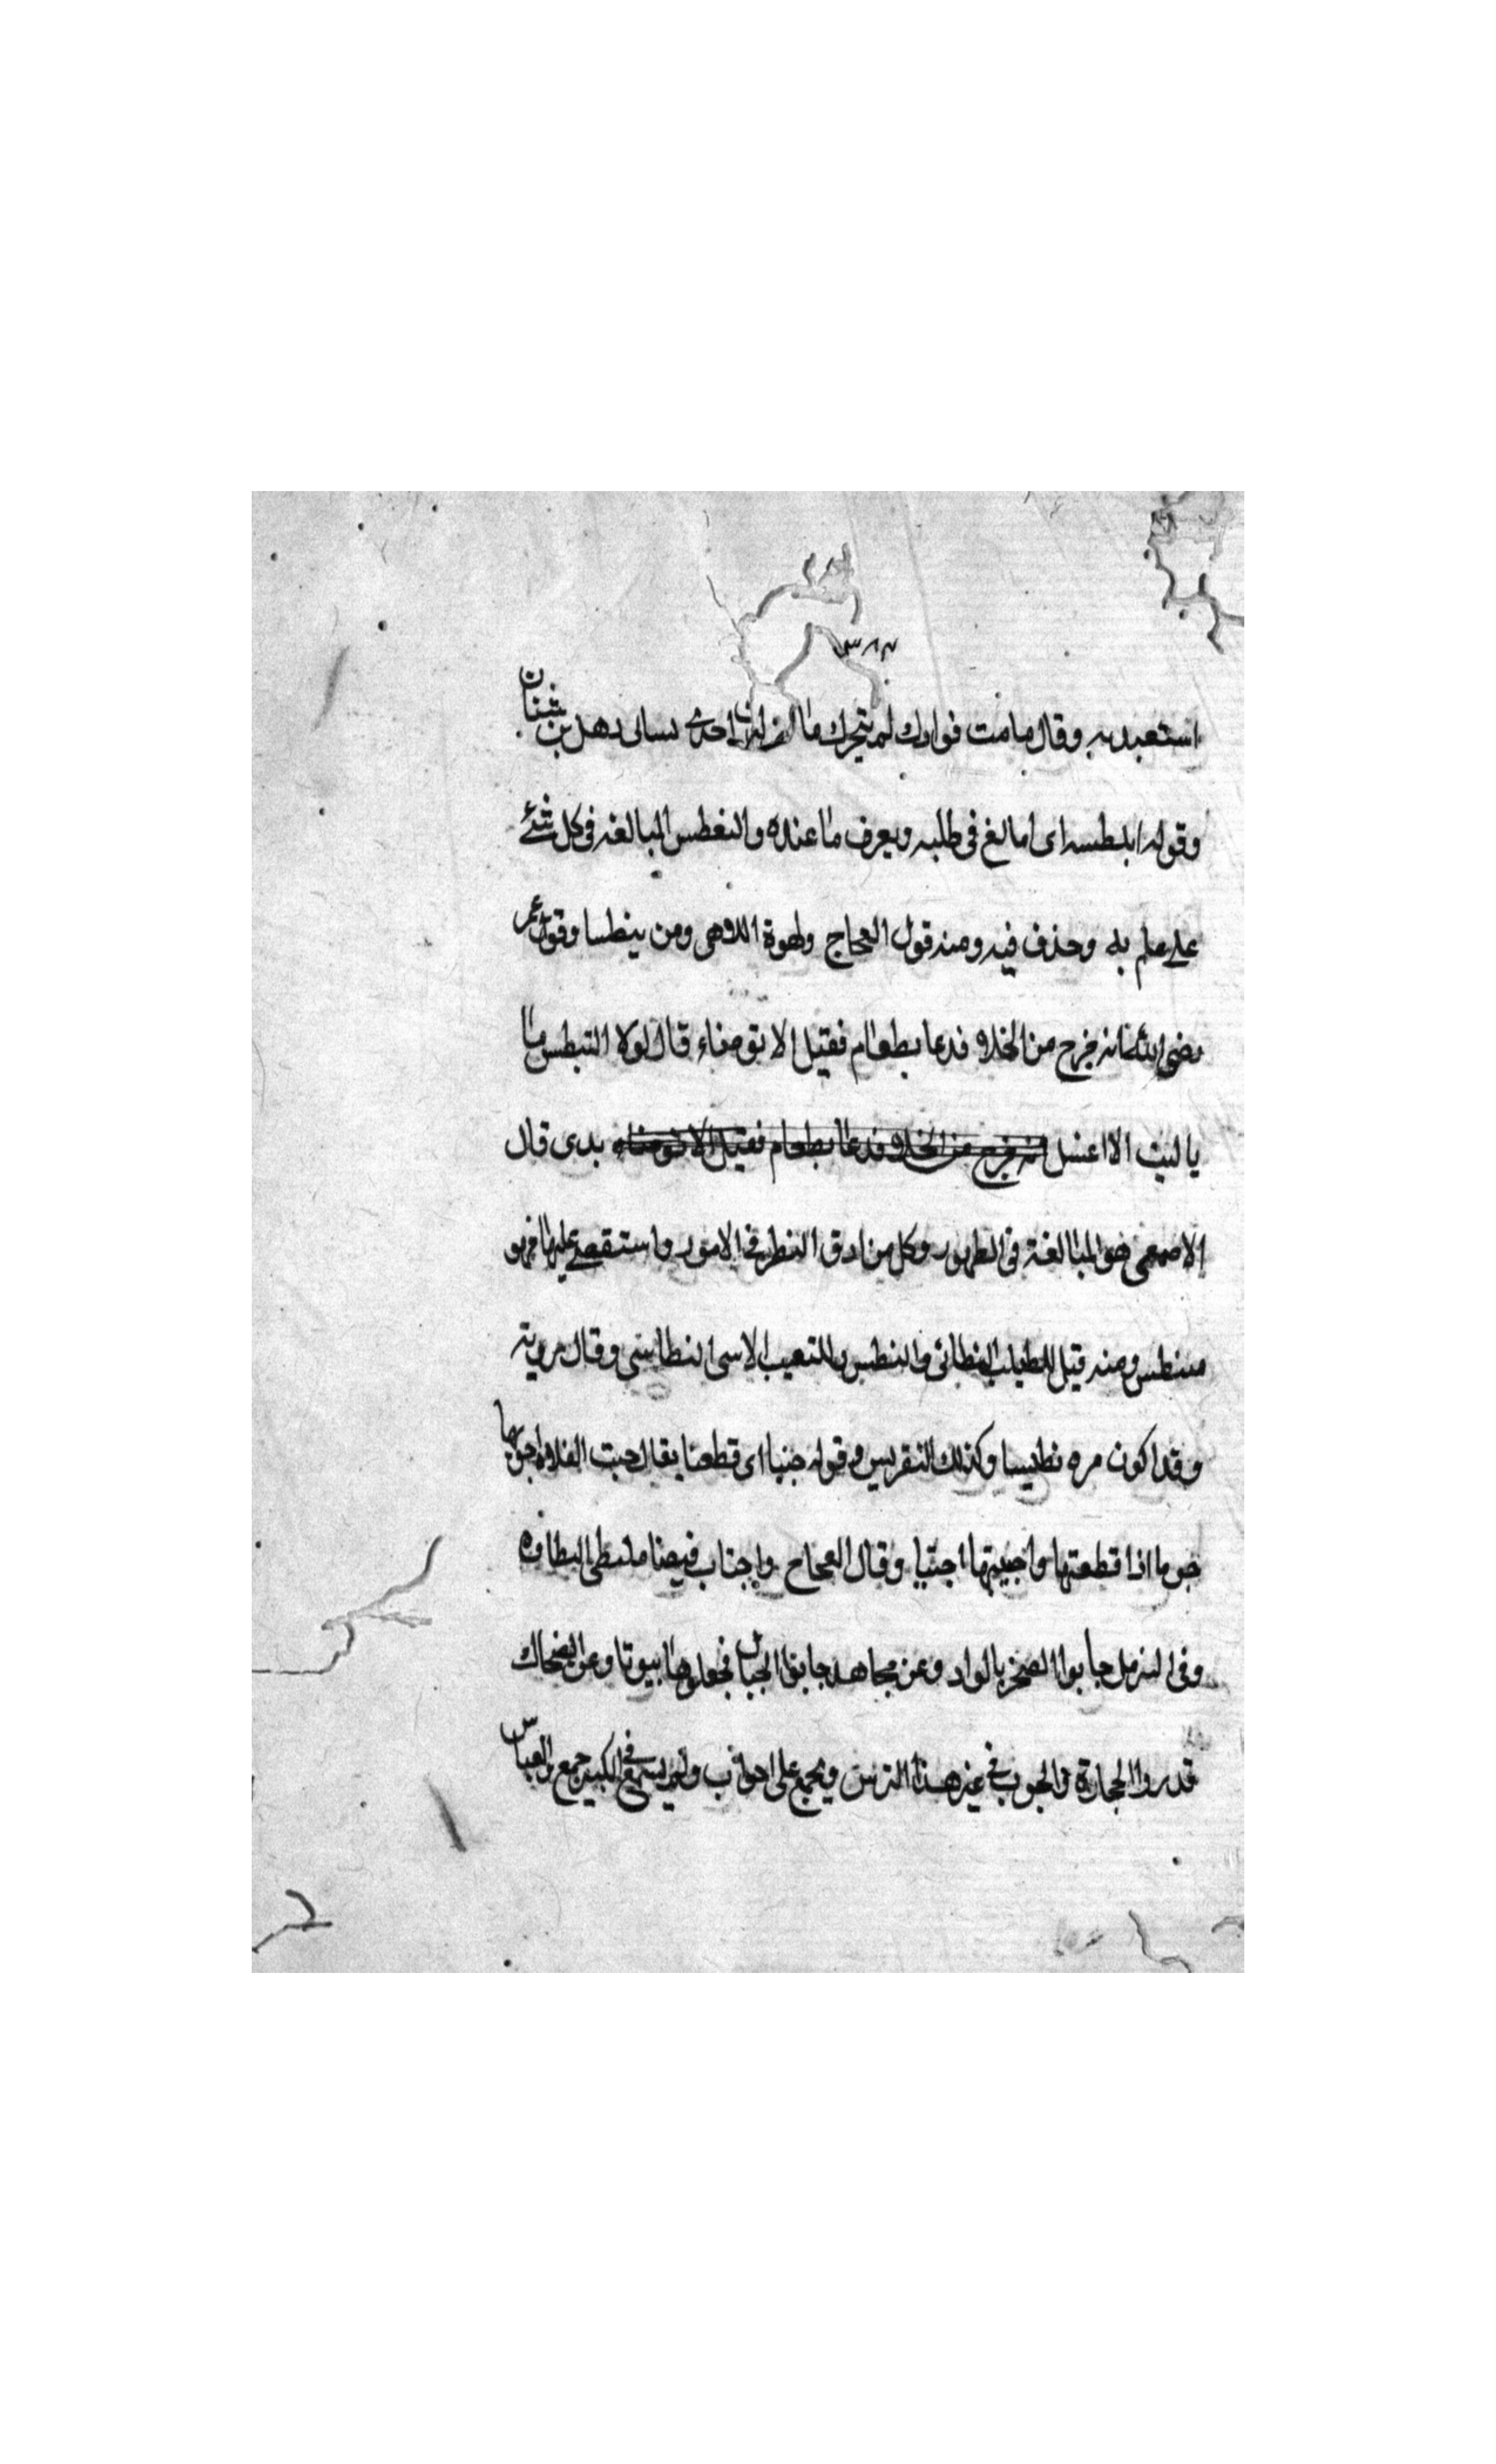 ٣٨٢
استعبدته وقال مامت فوادك لم يتحرك ما احدى نسائى دهل بن شبنان
وقوله اى امالغ فى طلبه ويعرف ما عنده والتغطس المبالغه فى كل شئ
على علم به وحذف فيه ومنه قول العجاج ولهوة اللاهى ومن ينطسا وقول عمر
رضى الله عنه انه خرج من الخلاء فدعا بطعام فقيل الا توضاء قال لولا التبطس ما
باليت الا اغسل انه خرج من الخلاء فدعا بطعام فقيل الا توضاء يدى قال
الاصمعى هو المبالغة فى الطهور وكل من ادق النظر فى الامور واستقصى عليها فهو
متنطس ومنه قيل للطبيب النطاسى والنطس الاسى النطاسى وقال روبة
وقد اكون مره نطيسا وكذلك النقريس وقوله جنبا اى قطعنا يقال جبت الفلاة اجوبها
جوبا اذا قطعتها واجتبيتها اجتيا وقال العجاج واجتاب قيضا
وفى التنزيل جابوا الصخر بالواد وعن مجاهد جابوا الجبال فجعلوها بيوتا وعن الضحاك
قدروا الحجارة والجوب فى غير هذا الترس ويجمع على اجواب ولم يسمع فى الكبير جمع العباس